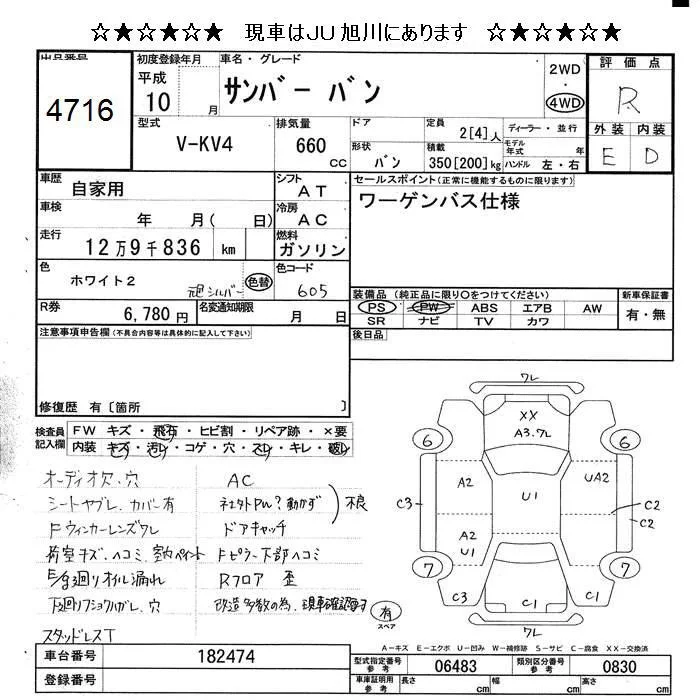 ☆★☆★☆★ 現車はJU旭川にあります ☆★☆★☆★
出品番号
4716
初度登録年月
平成
10 月
車名・グレード
サンバー バン
2WD
4WD
評価点
R
外装 内装
E D
型式
V-KV4
排気量
660 cc
ドア
形状
バン
定員
2[4]人
積載
350[200]kg
ディーラー・並行
モデル年式 年
ハンドル 左・右
車歴
自家用
シフト
AT
車検
年 月( 日)
冷房
AC
走行
12万9千836 km
燃料
ガソリン
色
ホワイト2 元色シルバー 色替
色コード
605
R券
6,780円
名変通知期限
月 日
セールスポイント(正常に機能するものに限ります)
ワーゲンバス仕様
装備品(純正品に限り○をつけてください)
PS PW ABS エアB AW
SR ナビ TV カワ
新車保証書
有・無
後日品
注意事項申告欄(不具合内容等は具体的に記入して下さい)
修復歴 有〔箇所 〕
検査員記入欄
FW キズ・飛石・ヒビ割・リペア跡・×要
内装 キズ・汚レ・コゲ・穴・スレ・キレ・破レ
オーディオ欠、穴
シートヤブレ、カバー有
Fウィンカーレンズワレ
荷室キズ、ヘコミ、室内ペイント
E/G廻りオイル漏れ
下廻りフショクハガレ、穴
スタッドレスT
AC
社外PW?動かず 不良
ドアキャッチ
Fピラー下部ヘコミ
Rフロア 歪
改造多数の為、現車確認
有
スペア
ワレ
XX
A3.ワレ
6 6
A2 U1 UA2
C3 C2
C2
A2
U1
7 7
C3 C1 C1
ワレ
A-キズ E-エクボ U-凹み W-補修跡 S-サビ C-腐食 XX-交換済
車台番号
182474
登録番号
型式指定番号
参考
06483
類別区分番号
参考
0830
車庫証明用
参考
長さ cm
幅 cm
高さ cm